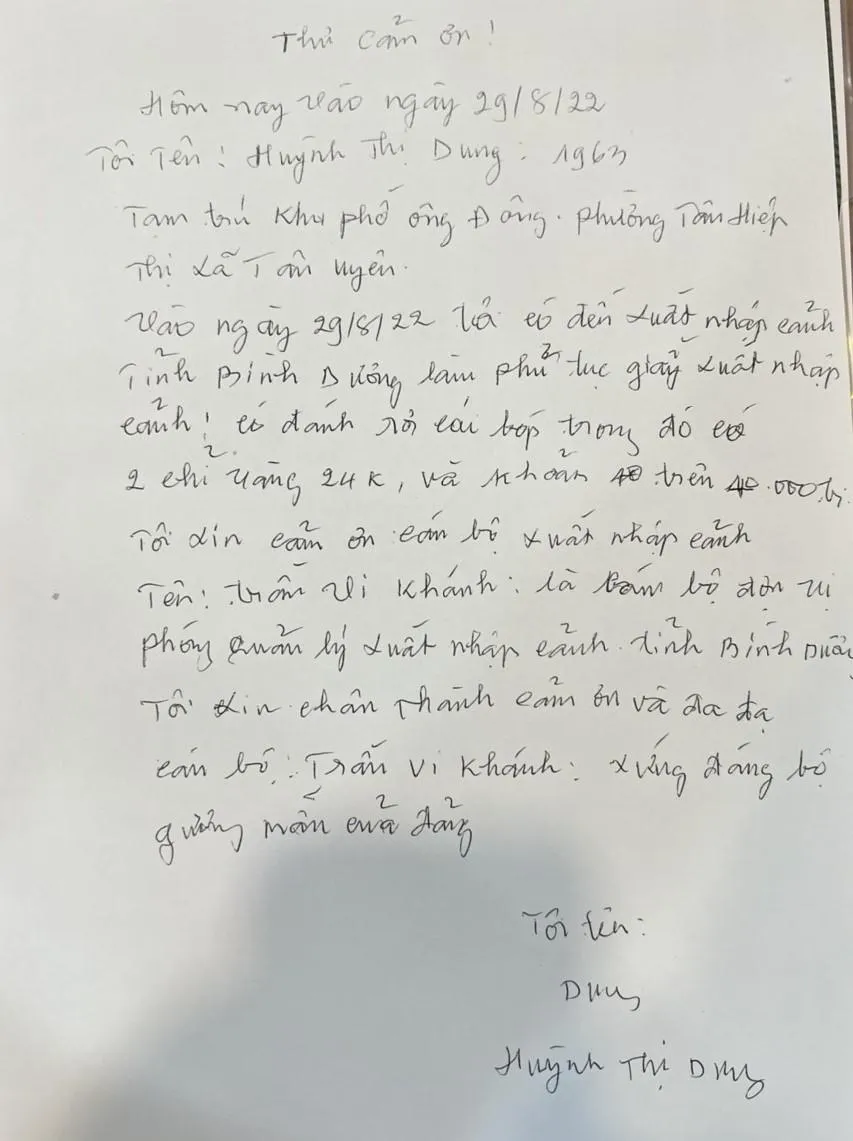 Thư cảm ơn!
Hôm nay vào ngày 29/8/22
Tôi Tên: Huỳnh Thị Dung: 1963
Tạm trú Khu phố ông Đông. phường Tân Hiệp
Thị xã Tân uyên.
Vào ngày 29/8/22 có đến xuất nhập cảnh
Tỉnh Bình Dương làm phủ tục giấy xuất nhập
cảnh! có đánh rơi cái bóp trong đó có
2 chỉ vàng 24K, và khoản trên
Tôi xin cảm ơn cán bộ xuất nhập cảnh
Tên: trần Vi Khánh: là cán bộ đơn vị
phòng quản lý xuất nhập cảnh. tỉnh Bình Dương
Tôi xin chân thành cảm ơn và đa tạ
cán bộ: Trần Vi Khánh: xứng đáng bộ
gương mẫn của đảng
Tôi tên:
Dung
Huỳnh Thị Dung